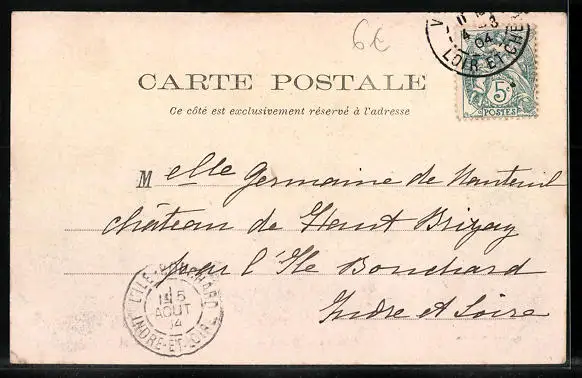 6€
V
11
4 -8
04
LOIR ET CHER
5c
POSTES
CARTE POSTALE
Ce côté est exclusivement réservé à l'adresse
Melle Germaine de Nanteuil
château de Haut Brizay
par l'Ile Bouchard
Indre et Loire
L'ILE-BOUCHARD
15
AOUT
04
INDRE-ET-LOIRE